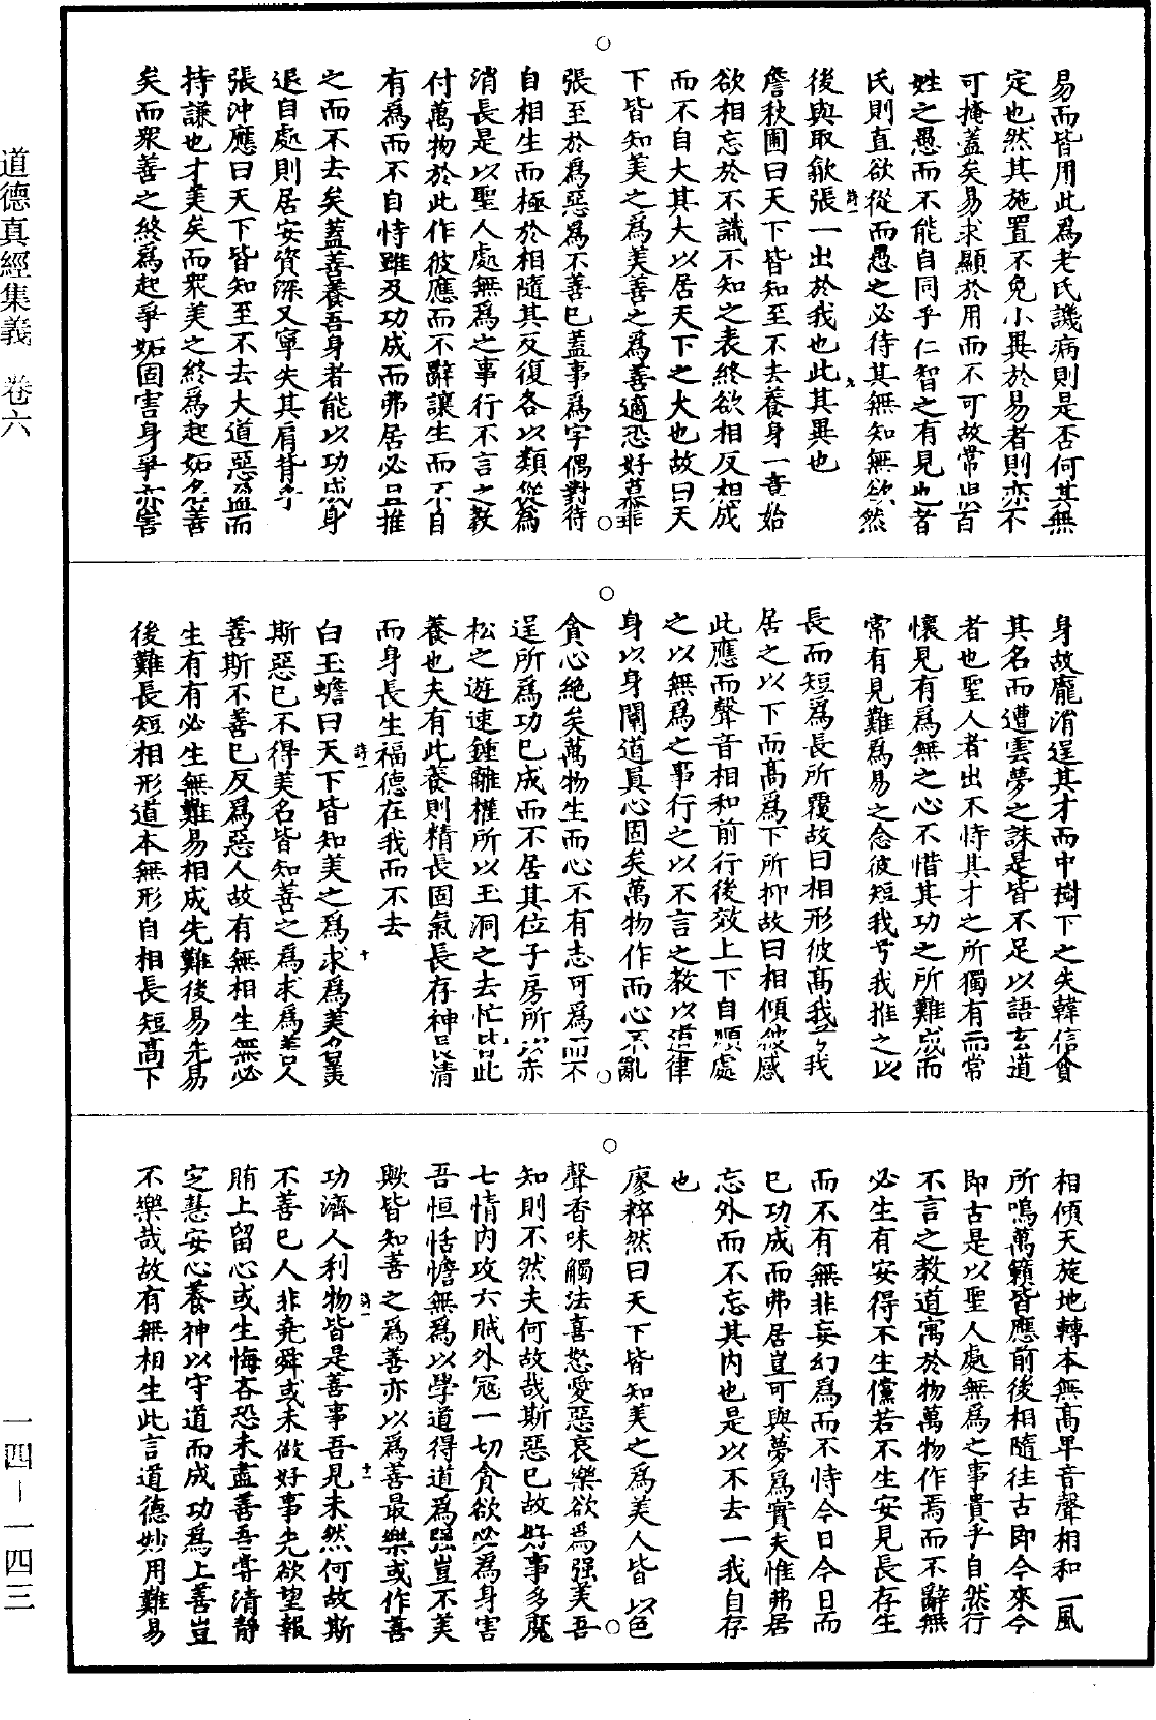 易而皆用此爲老氏譏病則是否何其無
定也然其施置不免小異於易者則亦不
可掩蓋矣易求顯於用而不可故常患百
姓之愚而不能自同乎仁智之有見也老
氏則直欲從而愚之必待其無知無欲然
後與取歙張一出於我也此其異也
詹秋圃曰天下皆知至不去養身一章始
欲相忘於不識不知之表終欲相反相成
而不自大其大以居天下之大也故曰天
下皆知美之爲美善之爲善適恐好慕乖
張至於爲惡爲不善已蓋事爲字偶對待
自相生而極於相隨其反復各以類從爲
消長是以聖人處無爲之事行不言之教
付萬物於此作彼應而不辭讓生而不自
有爲而不自恃雖及功成而弗居必且推
之而不去矣蓋善養吾身者能以功成身
退自處則居安資深又寧失其肩背乎
張沖應曰天下皆知至不去大道惡盈而
持謙也才美矣而衆美之終爲起妬名善
矣而衆善之終爲起爭妬固害身爭亦害
身故龐涓逞其才而中樹下之失韓信貪
其名而遭雲夢之誅是皆不足以語玄道
者也聖人者出不恃其才之所獨有而常
懷見有爲無之心不惜其功之所難成而
常有見難爲易之念彼短我兮我推之以
長而短爲長所覆故曰相形彼高我兮我
居之以下而高爲下所抑故曰相傾彼感
此應而聲音相和前行後效上下自順處
之以無爲之事行之以不言之教以道律
身以身闡道眞心固矣萬物作而心不亂
貪心絶矣萬物生而心不有志可爲而不
逞所爲功已成而不居其位子房所以赤
松之遊速鍾離權所以玉洞之去忙皆此
養也夫有此養則精長固氣長存神長清
而身長生福德在我而不去
白玉蟾曰天下皆知美之爲求爲美名美
斯惡已不得美名皆知善之爲求爲善人
善斯不善已反爲惡人故有無相生無必
生有有必生無難易相成先難後易先易
後難長短相形道本無形自相長短高下
相傾天旋地轉本無高卑音聲相和一風
所鳴萬籟皆應前後相隨往古即今來今
即古是以聖人處無爲之事貴乎自然行
不言之教道寓於物萬物作焉而不辭無
必生有安得不生儻若不生安見長存生
而不有無非妄幻爲而不恃今日今日而
已功成而弗居豈可與夢爲實夫惟弗居
忘外而不忘其内也是以不去一我自存
也
廖粹然曰天下皆知美之爲美人皆以色
聲香味觸法喜怒愛惡哀樂欲爲强美吾
知則不然夫何故哉斯惡已故好事多魔
七情内攻六賊外寇一切貪欲必爲身害
吾恒恬憺無爲以學道得道爲强豈不美
歟皆知善之爲善亦以爲善最樂或作善
功濟人利物皆是善事吾見未然何故斯
不善已人非堯舜或未做好事先欲望報
賄上留心或生悔吝恐未盡善吾守清靜
定慧安心養神以守道而成功爲上善豈
不樂哉故有無相生此言道德妙用難易
道德真經集義　卷六
一四—一四三